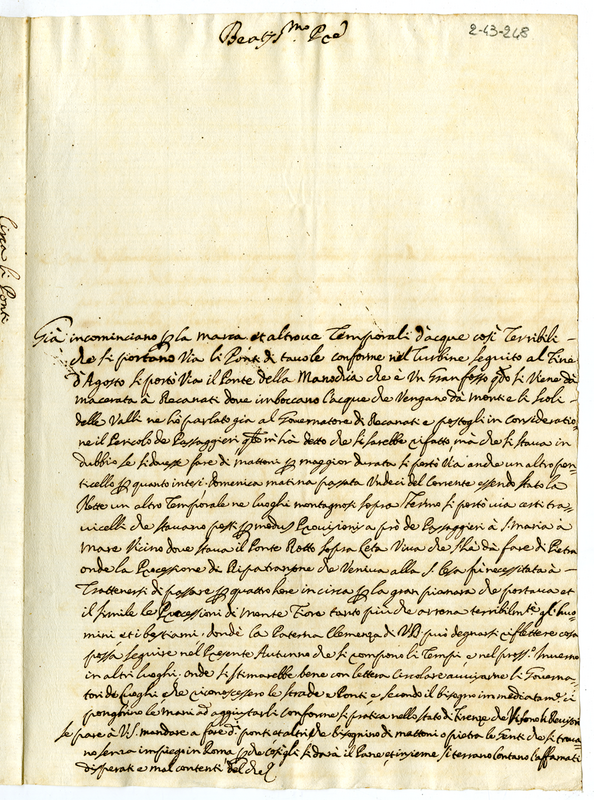 Beatiss.mo P̃re
2-43-248
Circa li Ponti
Già incominciano p la Marca et altroue Temporali d'acque così Terribili
che si portano Via li Ponti di tauole conforme nel Turbine seguito al Fine
d'Agosto si portò Via il Ponte della che è Un Gran fosso si Viene da
Macerata a Recanati doue imboccano l'acque che Vengano da monti e li scoli
delle Valli ne hò parlato già al Gouernatore di Recanati e postogli in consideratio
ne il Pericolo de Passaggieri mi hà detto che si sarebbe rifatto, mà che si staua in
dubbio se si douesse fare di mattoni p maggior durata si portò Via anche un altro pon
ticello p quanto intesi. Domenica matina passata Undeci del Corrente essendo stato la
Notte un altro Temporale ne luoghi montagnosi sopra Fermo si portò uia certi tra
uicelli che stauano posti p modu Prouisioni a prò de Passaggieri à S. Maria à
Mare Vicino doue staua il Ponte Rotto sopra Leta Viua che s'hà da fare di Pietra
onde la Processione di Ripatransone che Veniua alla S. Casa fù necessitata à
Trattenersi di passare p quattro hore in circa p la gran pianara che portaua et
il simile le Processioni di Monte Fiore tanto più che atterra terribilm.te gl'huo
mini, et i bestiami, donde la Paterna Clemenza di V.B. può degnarsi riflettere cosa
possa seguire nel Presente Autunno che si rompono li Tempi, e nel pross.o Inuerno
in altri luoghi, onde si stimarebbe bene con lettera Circolare auuisarne li Gouerna
tori de luoghi che riconoscessero le strade e Ponti, e secondo il bisogno immediatam.te ci
ponghino le mani ad aggiustarli conforme si pratica nello stato di Firenze che Vi sono li
se pare à V.S. mandare a fare d. ponti et altri che bisognino di mattoni o pietra le Genti che si troua
no senza impiego in Roma che così gli si darà il Pane, et insieme si terrano lontano l'affamati
disperati e mal contenti